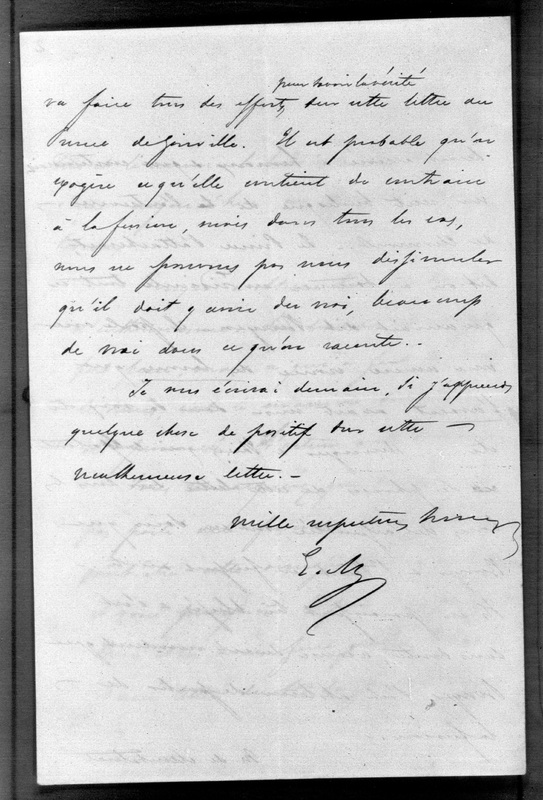 pour savoir la vérité
va faire tous ses efforts, sur cette lettre du
Prince de Joinville. Il est probable qu'on
exagère ce qu'elle contient de contraire
à la fusion, mais dans tous les cas,
nous ne pouvons pas nous dissimuler
qu'il doit y avoir du vrai, beaucoup
de vrai dans ce qu'on raconte. -
Je vous écrirai demain, si j'apprends
quelque chose de positif sur cette
malheureuse lettre. -
mille respectueux